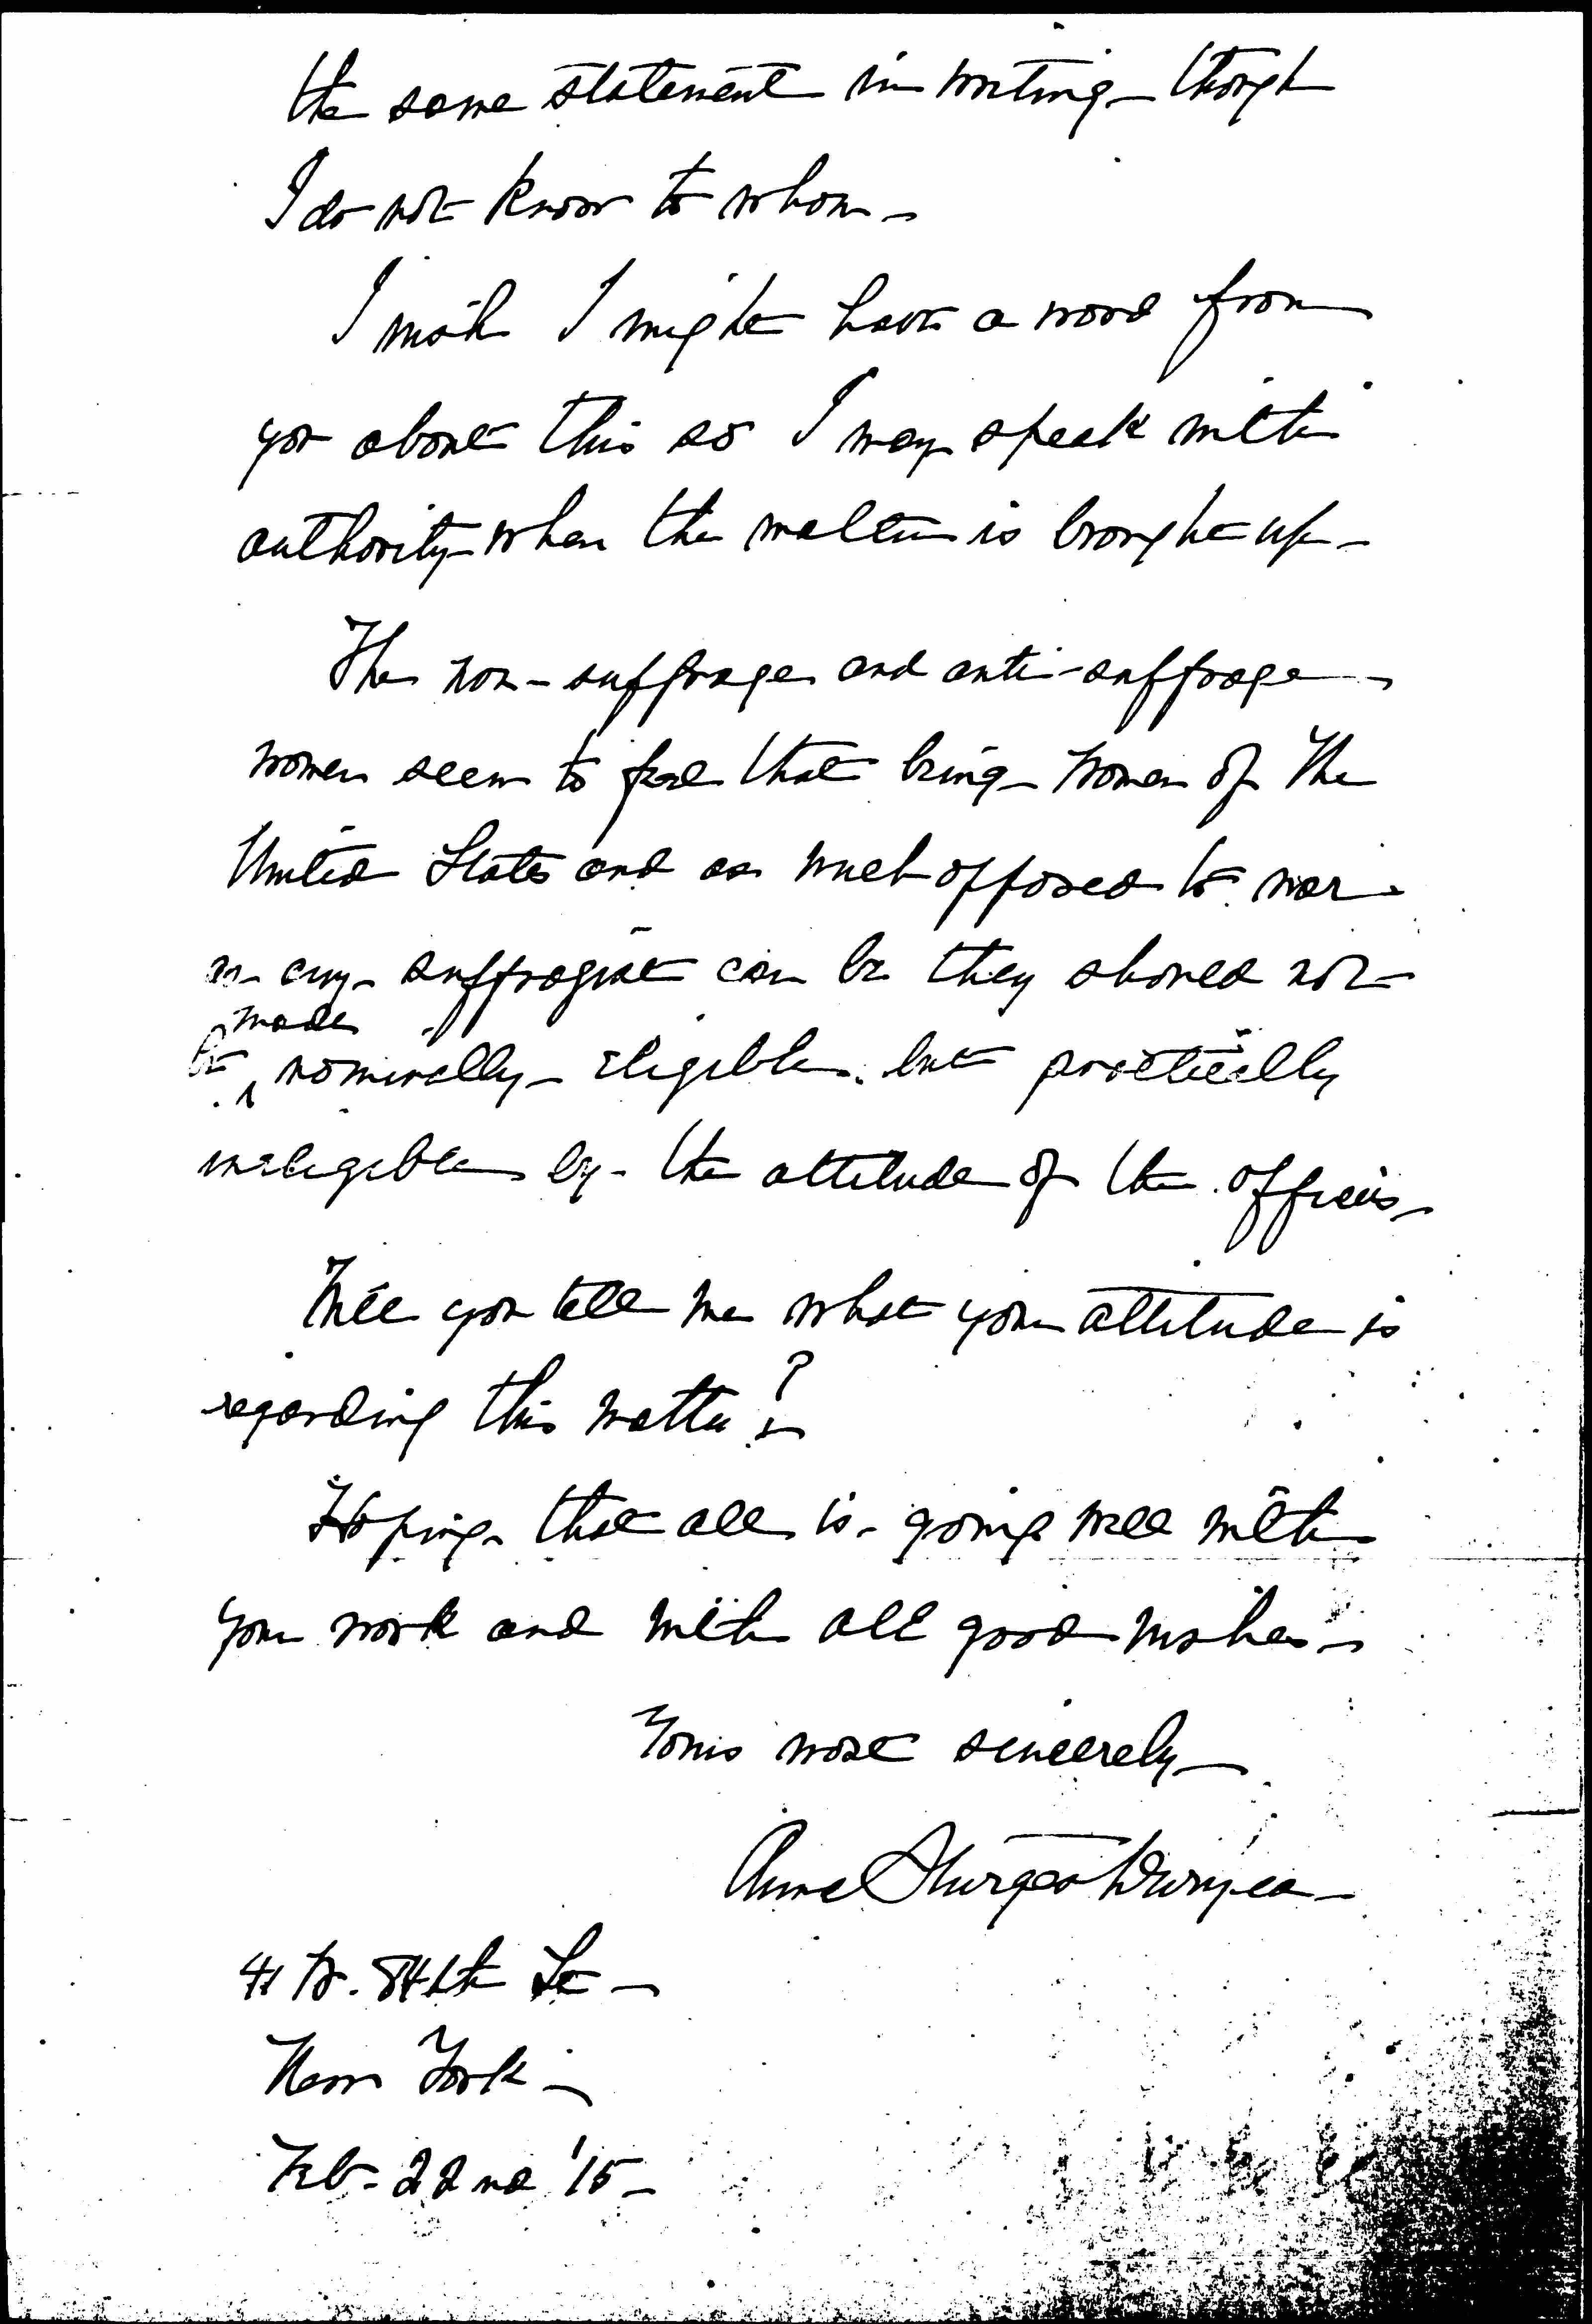 the same statement in writing - though
I do not know to whom -
I wish I might have a word from
you about this so I may speak with
authority when the matter is brought up -
The non-suffrage and anti-suffrage
women seem to feel that being women of the
United States and as much opposed to war
as any suffragist can be they should not
be made nominally eligible but practically
ineligible by the attitude of the officers -
Will you tell me what your attitude is
regarding this matter?
Hoping that all is going well with
your work and with all good wishes -
Yours most sincerely -
Anne Sturges Duryea -
41 W. 84th St -
New York -
Feb - 22nd '15 -